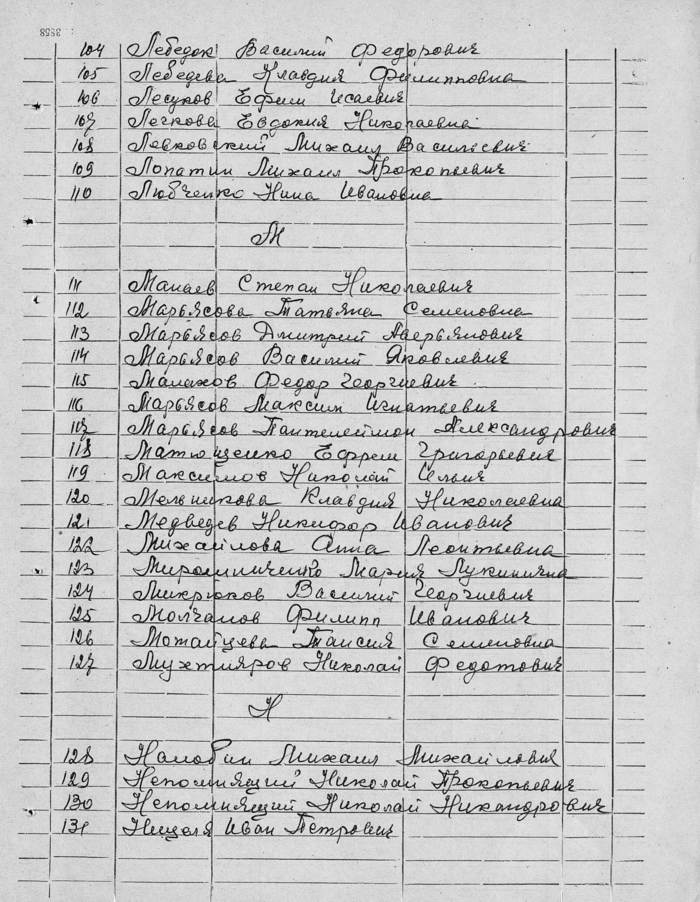 3858
104 Лебедок Василий Федорович
105 Лебедева Клавдия Филипповна
106 Лесуков Ефим Исаевич
107 Легкова Евдокия Николаевна
108 Левковский Михаил Васильевич
109 Лопатин Михаил Прокопьевич
110 Любченко Нина Ивановна
М
111 Манаев Степан Николаевич
112 Марьясова Татьяна Семеновна
113 Марьясов Дмитрий Аверьянович
114 Марьясов Василий Яковлевич
115 Малахов Федор Георгиевич
116 Марьясов Максим Игнатьевич
117 Марьясов Пантелеймон Александрович
118 Матющенко Ефрем Григорьевич
119 Максимов Николай Ильич
120 Мельникова Клавдия Николаевна
121 Медведев Никифор Иванович
122 Михайлова Анна Леонтьевна
123 Мирошниченко Мария Лукинична
124 Микрюков Василий Георгиевич
125 Молчанов Филипп Иванович
126 Таисия Семеновна
127 Мухтияров Николай Федотович
Н
128 Налобин Михаил Михайлович
129 Непомнящий Николай Прокопьевич
130 Непомнящий Николай Никандрович
131 Нищеля Иван Петрович